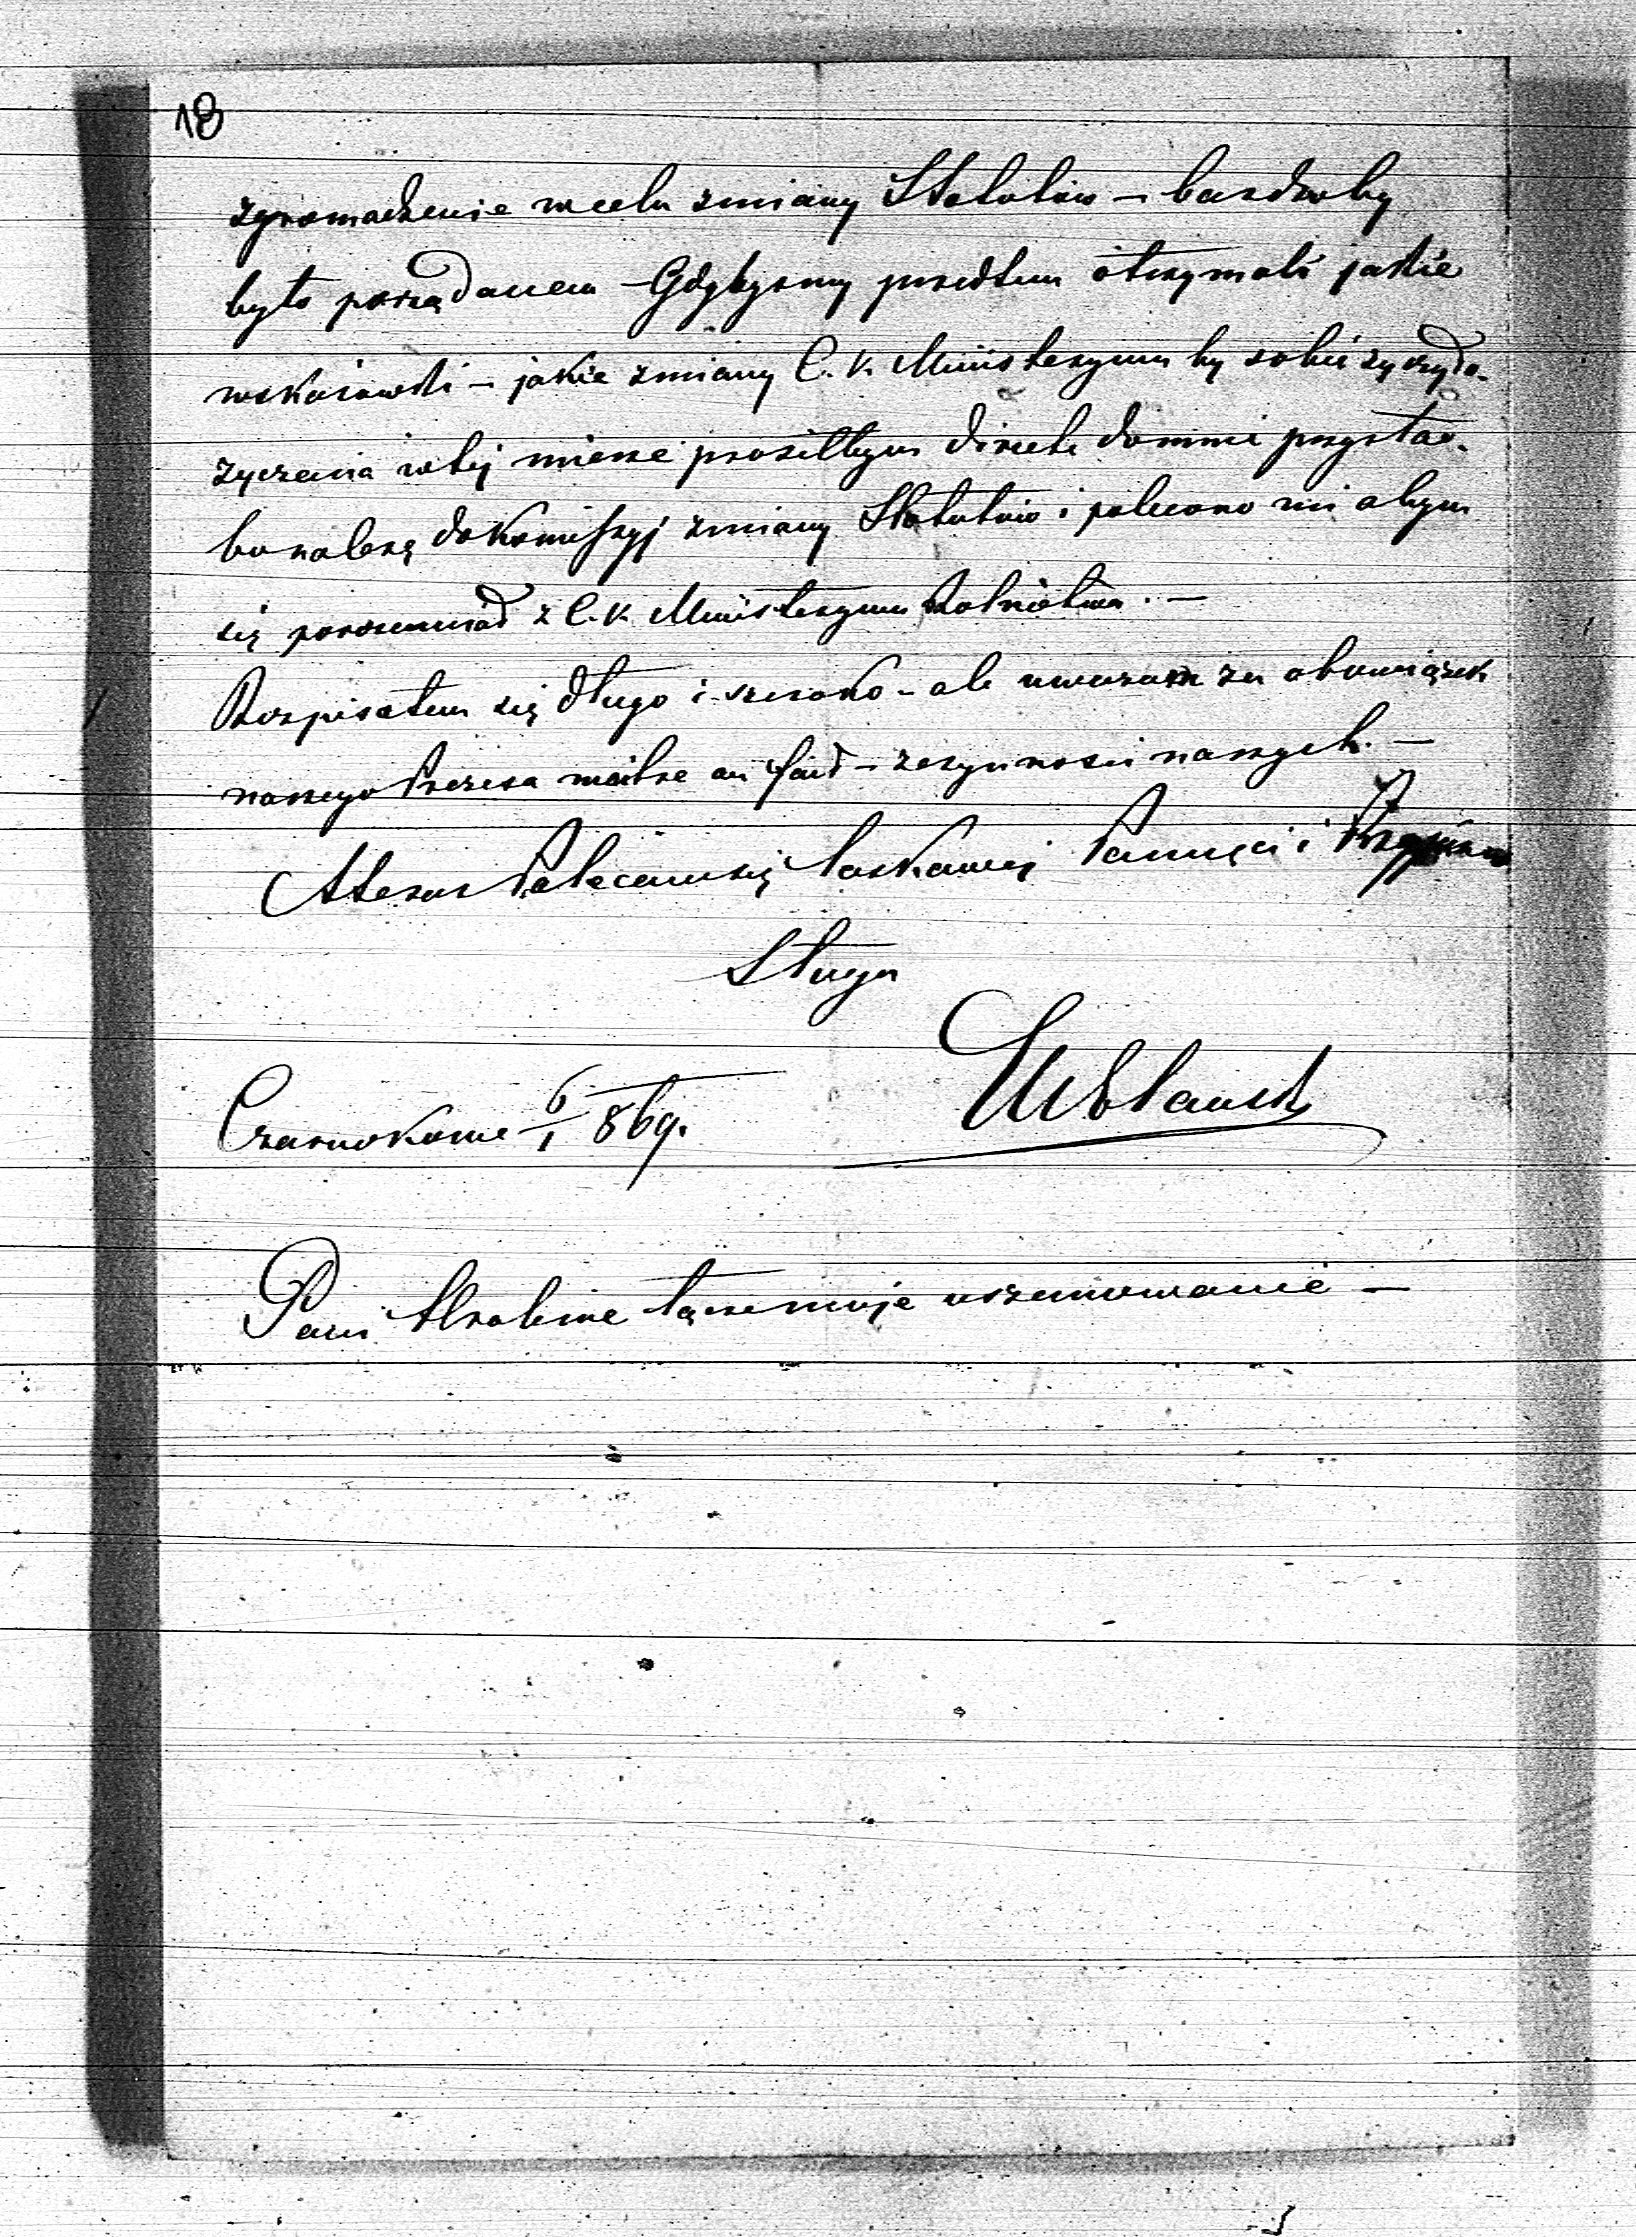 18
zgromadzenie w celu zmiany Statutów – bardzoby
było porządanem – Gdybysmy przedtem otrzymali jakie
wskazówki – jakie zmiany C. k. Ministeryum by sobie życzyło –
życzenia w tej mierze prosiłbym directe do mnie przysłać –
bo należę do Komissyj zmiany Statutów i polecono mi abym
się porozumiał z C. k. Ministeryum Rolnictwa. –
Rozpisałem się długo i szeroko – ale uwarzam za obowiązek
naszego Prezesa mettre au fait – z czynności naszych. –
A teraz Polecam się łaskawej Pamięci i
Sługa
Czarnokońce 6/1 869.
Pani Hrabinie łącze moje uszanowanie –